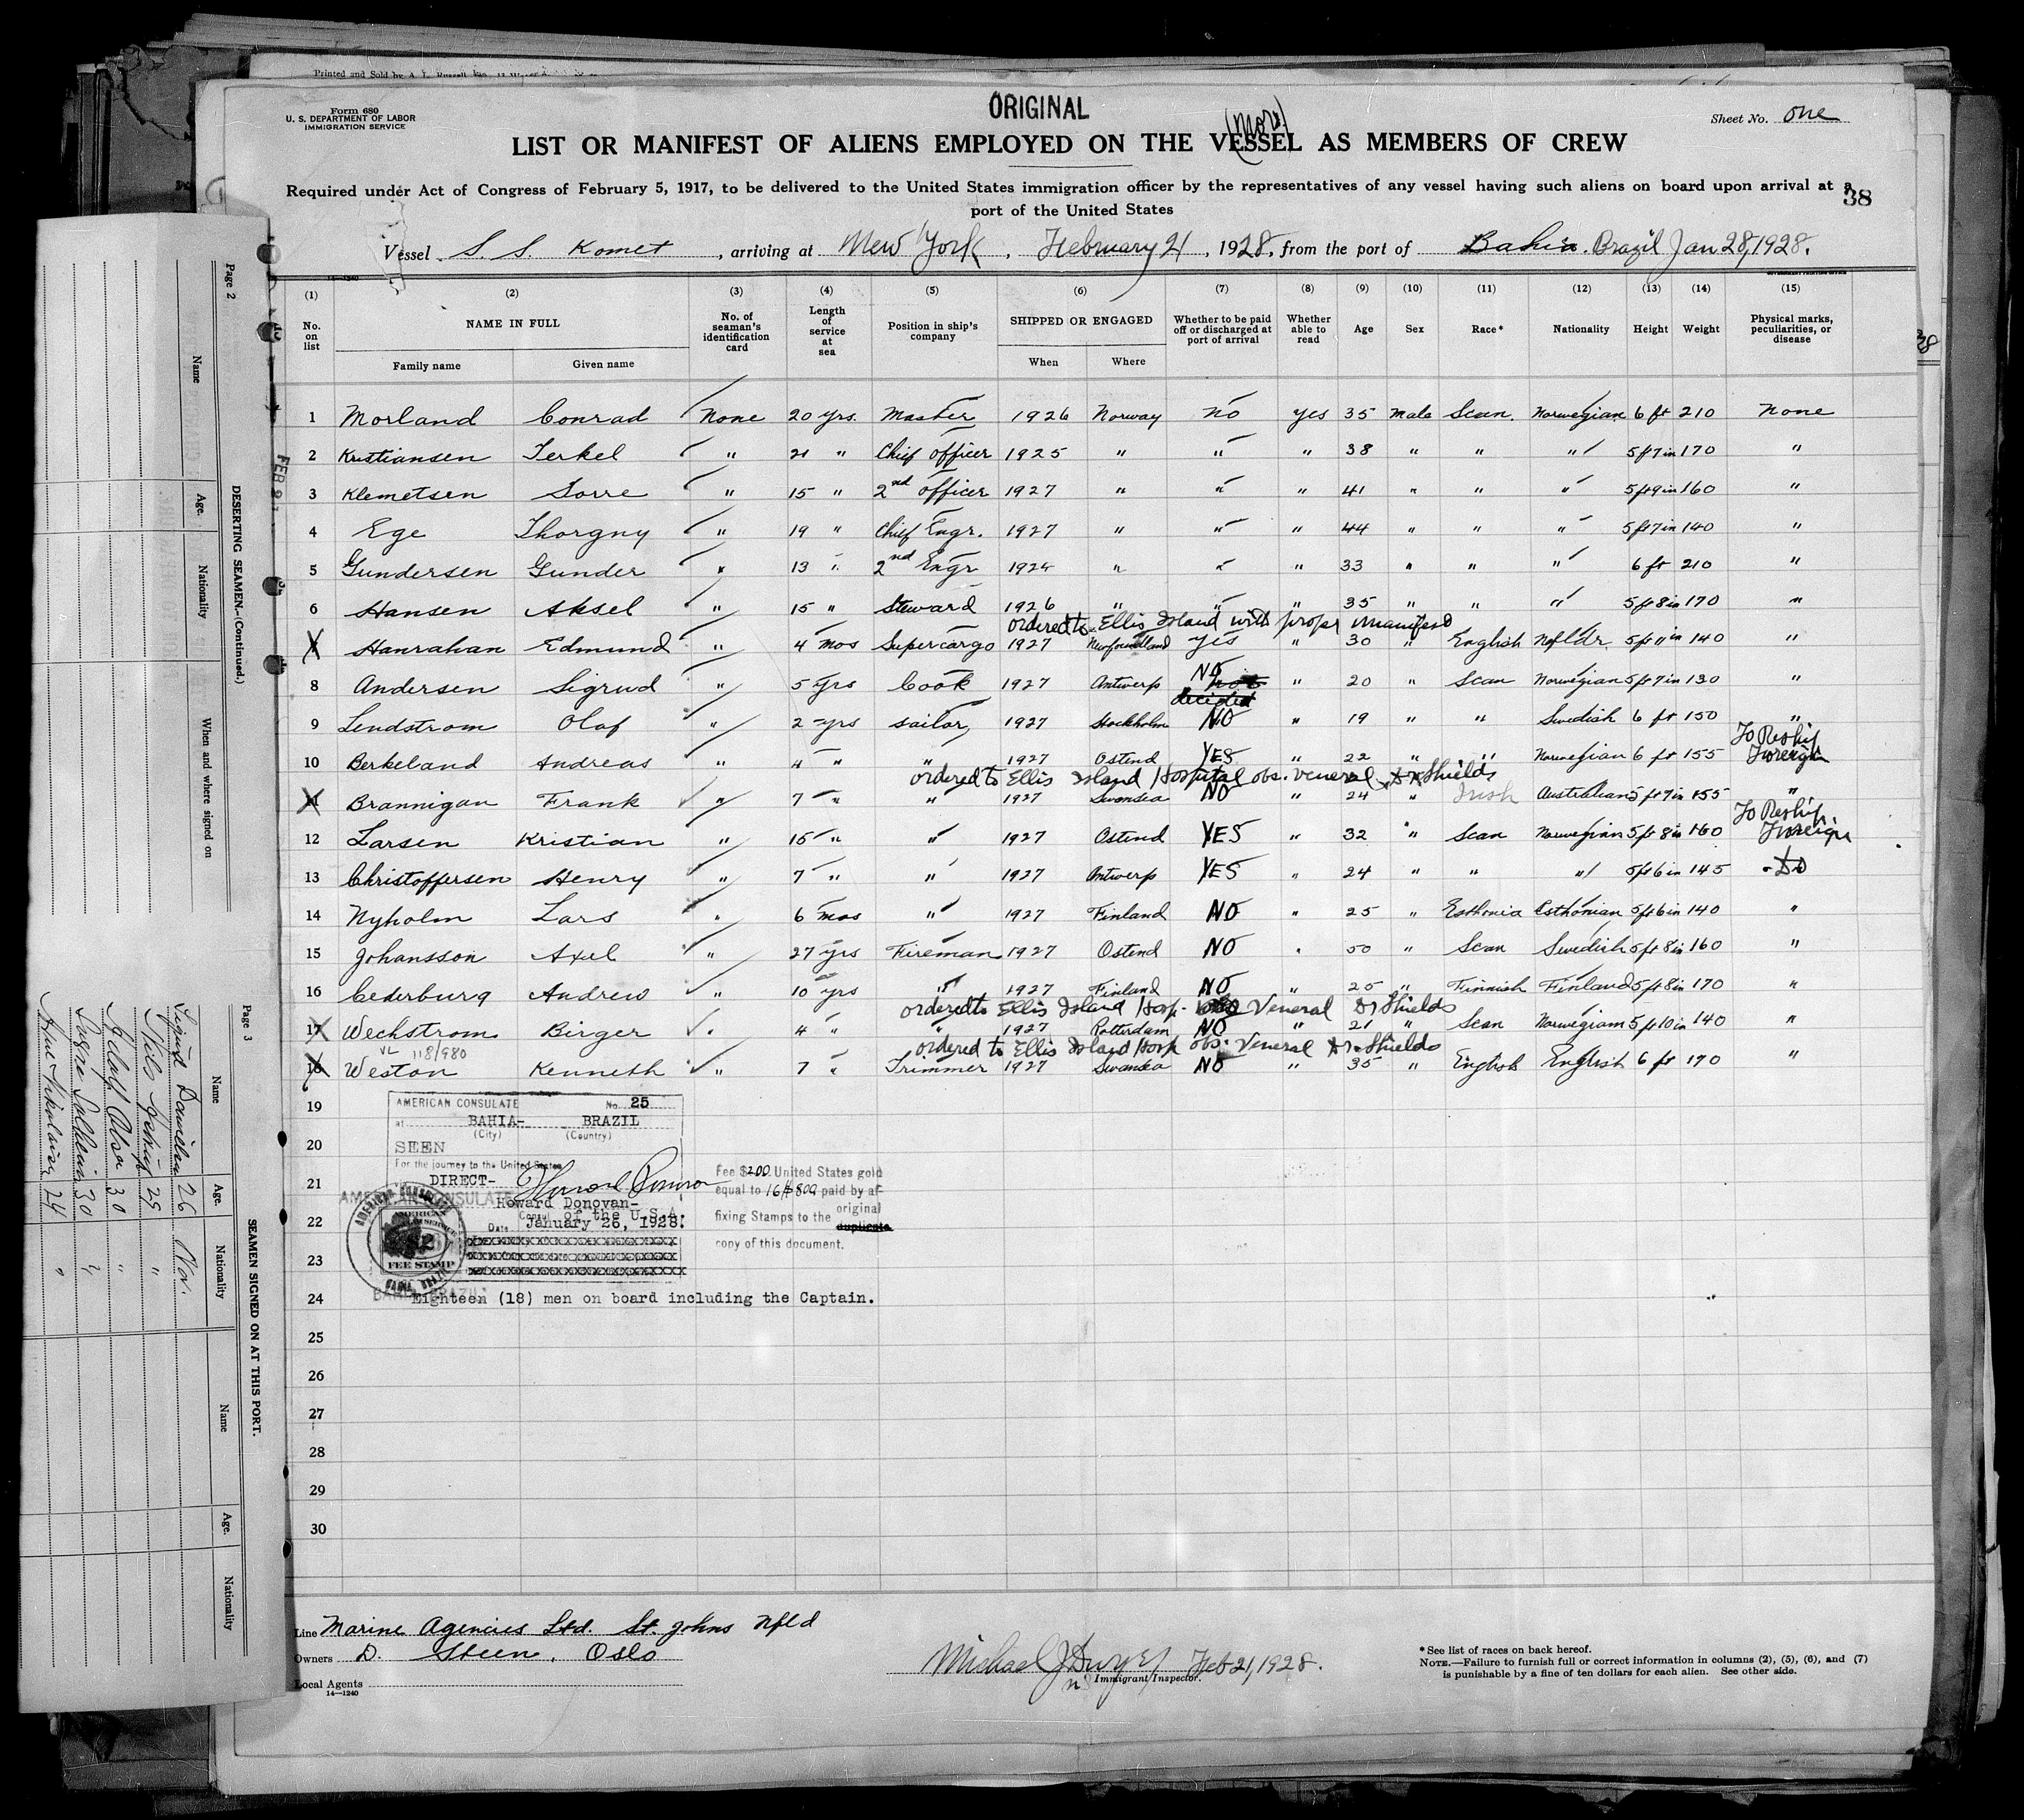 Printed and Sold by A. L. Russell
Form 680
U. S. DEPARTMENT OF LABOR
IMMIGRATION SERVICE
ORIGINAL
(Mor.)
Sheet No. one
LIST OR MANIFEST OF ALIENS EMPLOYED ON THE VESSEL AS MEMBERS OF CREW
Required under Act of Congress of February 5, 1917, to be delivered to the United States immigration officer by the representatives of any vessel having such aliens on board upon arrival at a
port of the United States
38
Vessel S. S. Komet, arriving at New York, February 21, 1928, from the port of Bahia. Brazil Jan 28, 1928.
14—1240
(1) (2) (3) (4) (5) (6) (7) (8) (9) (10) (11) (12) (13) (14) (15)
No. on list NAME IN FULL Family name Given name No. of seaman's identification card Length of service at sea Position in ship's company SHIPPED OR ENGAGED When Where Whether to be paid off or discharged at port of arrival Whether able to read Age Sex Race* Nationality Height Weight Physical marks, peculiarities, or disease
1 Morland Conrad None 20 yrs. Master 1926 Norway no yes 35 Male Scan. Norwegian 6 ft 210 None
2 Kristiansen Terkel " 21 " Chief officer 1925 " " " 38 " " " 5 ft 7 in 170 "
3 Klemetsen Sorre " 15 " 2nd officer 1927 " " " 41 " " " 5 ft 9 in 160 "
4 Ege Thorgny " 19 " Chief Engr. 1927 " " " 44 " " " 5 ft 7 in 140 "
5 Gundersen Gunder " 13 " 2nd Engr 1924 " " " 33 " " " 6 ft 210 "
6 Hansen Aksel " 15 " Steward 1926 " " " 35 " " " 5 ft 8 in 170 "
ordered to Ellis Island with proper manifest
7 Hanrahan Edmund " 4 mos Supercargo 1927 Newfoundland yes " 30 " English Nfldr. 5 ft 11 in 140 "
8 Andersen Sigrud " 5 yrs Cook 1927 Antwerp NO not decided " 20 " Scan Norwegian 5 ft 7 in 130 "
9 Lendstrom Olaf " 2 yrs sailor 1927 Stockholm NO " 19 " " Swedish 6 ft 150 "
10 Berkeland Andreas " 4 " " 1927 Ostend YES " 22 " " Norwegian 6 ft 155 To Reship Foreign
ordered to Ellis Island Hospital obs. Veneral Dr Shields
11 Brannigan Frank " 7 " " 1927 Swansea NO " 24 " Irish Australian 5 ft 7 in 155 "
12 Larsen Kristian " 15 " " 1927 Ostend YES " 32 " Scan Norwegian 5 ft 8 in 160 To Reship. Foreign
13 Christoffersen Henry " 7 " " 1927 Antwerp YES " 24 " " " 5 ft 6 in 145 - Do
14 Nyholm Lars " 6 mos " 1927 Finland NO " 25 " Esthonia Esthonian 5 ft 6 in 140 "
15 Johansson Axel " 27 yrs Fireman 1927 Ostend NO " 50 " Scan Swedish 5 ft 8 in 160 "
16 Cederburg Andrew " 10 yrs " 1927 Finland NO " 25 " Finnish Finland 5 ft 8 in 170 "
ordered to Ellis Island Hosp. obs Veneral Dr Shields
17 Weckstrom Birger " 4 " " 1927 Rotterdam NO " 21 " Scan Norwegian 5 ft 10 in 140 "
VL 118/980
ordered to Ellis Island Hosp obs. Veneral Dr Shields
18 Weston Kenneth " 7 " Trimmer 1927 Swansea NO " 35 " English English 6 ft 170 "
19
20
21
22
23
24
25
26
27
28
29
30
AMERICAN CONSULATE No. 25
at BAHIA- BRAZIL
(City) (Country)
SEEN
For the journey to the United States
DIRECT-
Howard Donovan-
Consul of the U.S.A.
Date January 26, 1928.
AMERICAN CONSULATE
FEE STAMP
BAHIA, BRAZIL
Fee $2.00 United States gold
equal to 16$800 paid by af-
fixing Stamps to the original
duplicate
copy of this document.
Eighteen (18) men on board including the Captain.
Line Marine Agencies Ltd. St. Johns Nfld
Owners D. Steen, Oslo
Local Agents
14—1240
Michael J Dwyer Feb 21, 1928.
Immigrant Inspector.
* See list of races on back hereof.
NOTE.—Failure to furnish full or correct information in columns (2), (5), (6), and (7)
is punishable by a fine of ten dollars for each alien. See other side.
FEB 21
Page 2
DESERTING SEAMEN—(Continued.)
Name Age. Nationality When and where signed on
Page 3
SEAMEN SIGNED ON AT THIS PORT.
Name Age. Nationality Name Age. Nationality
Sigurd Danielsen 26 Nor.
Nils 25 "
Olsen 30 "
30 "
Nikolaisen 24 "